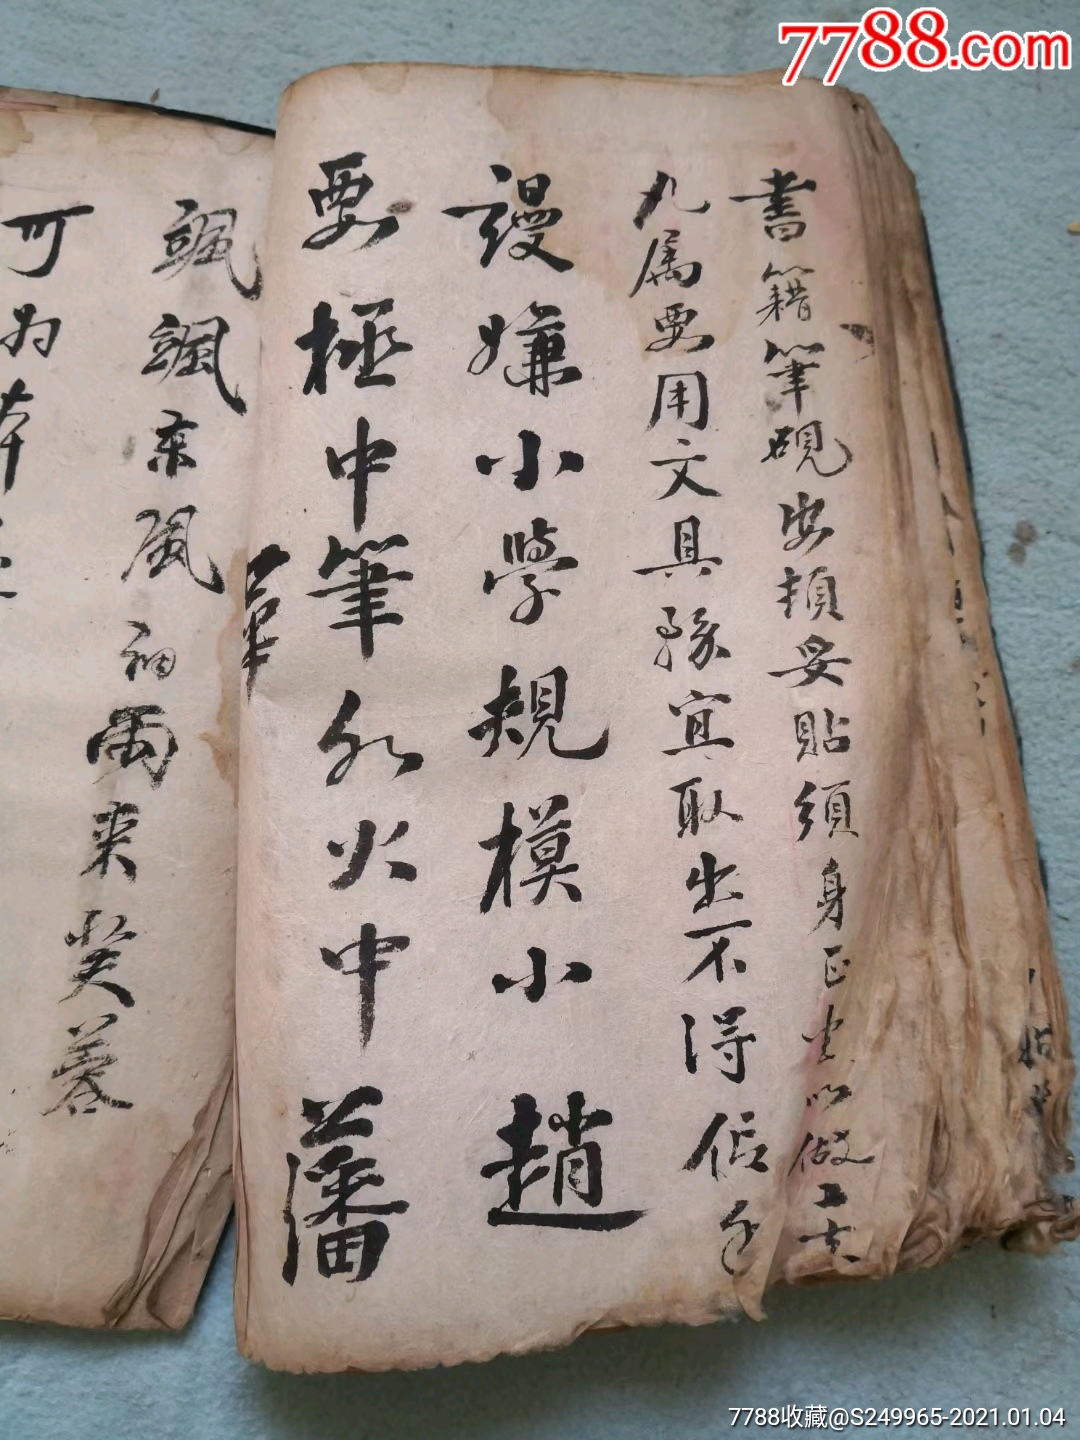 7788.com
書籍筆硯安頓妥貼須身正坐以做工夫
凡属要用文具務宜取出不得佰手
謾嫌小學規模小 趙
要極中筆水火中 藩
颯颯東風細雨來芙蓉
可为
7788收藏@S249965-2021.01.04